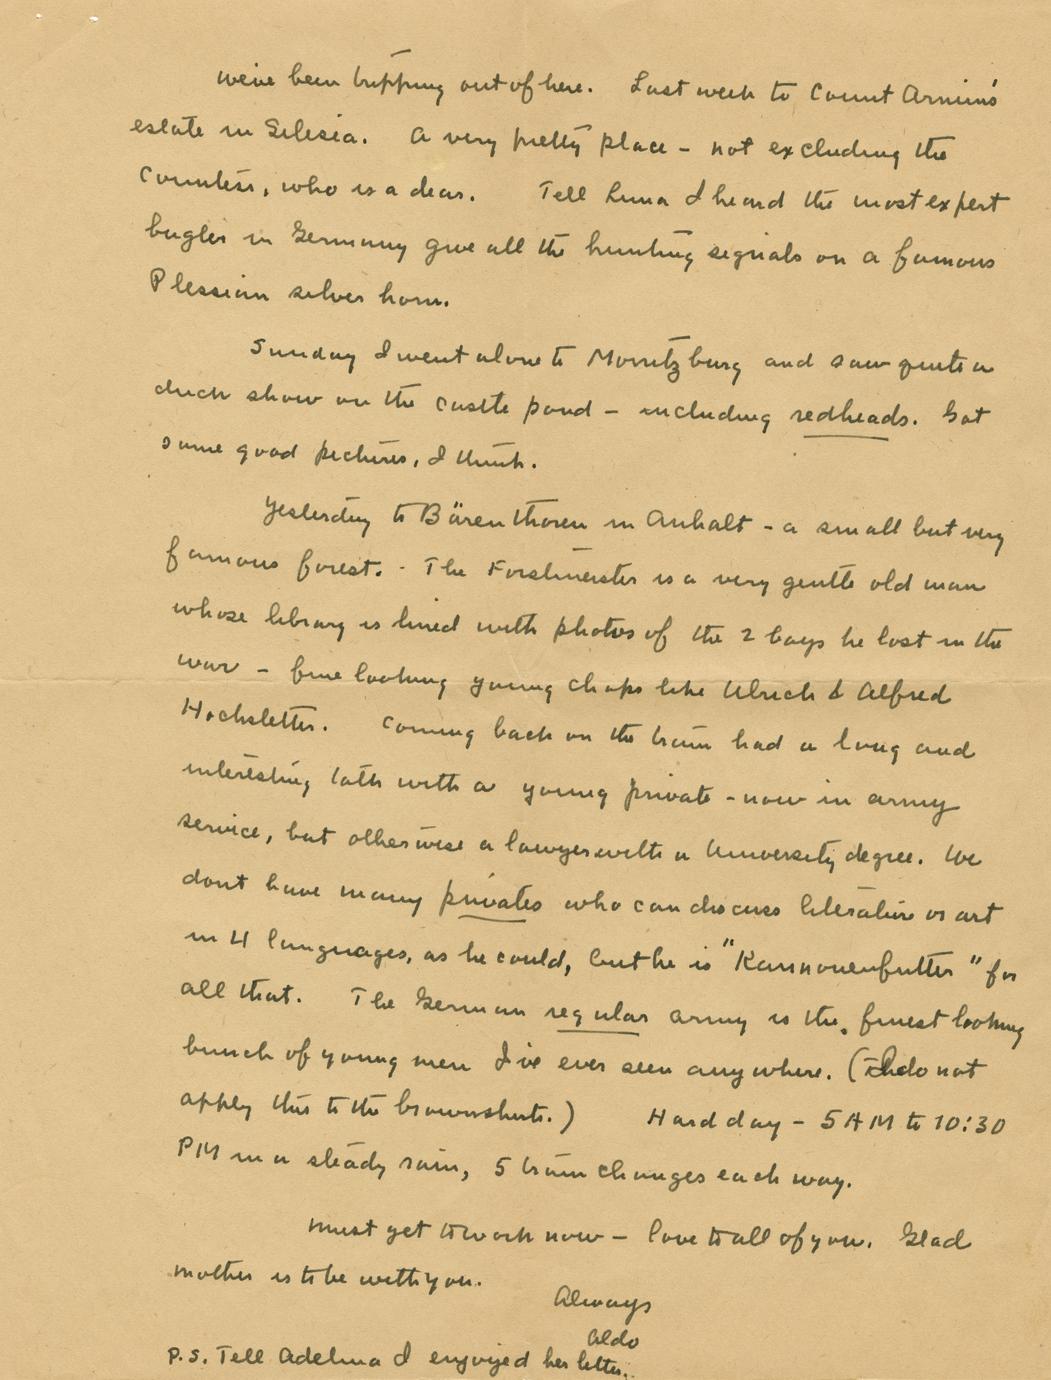 We've been tripping out of here. Last week to Count Arnim's
estate in Silesia. A very pretty place – not excluding the
Countess, who is a dear. Tell Luna I heard the most expert
bugler in Germany give all the hunting signals on a famous
Plessian silver horn.
Sunday I went alone to Morritzburg and saw quite a
duck show on the castle pond – including redheads. Got
some good pictures, I think.
Yesterday to Bärenthoren in Anhalt – a small but very
famous forest. - The Forstmeister is a very gentle old man
whose library is lined with photos of the 2 boys he lost in the
war – fine looking young chaps like Ulrich & Alfred
Hochstetter. Coming back on the train had a long and
interesting talk with a young private – now in army
service, but otherwise a lawyer with a University degree. We
dont have many privates who can discuss literature or art
in 4 languages, as he could, but he is "Kannonenfutter" for
all that. The German regular army is the finest looking
bunch of young men I've ever seen anywhere. (I do not
apply this to the brownshirts.) Hard day – 5 AM to 10:30
PM in a steady rain, 5 train changes each way.
Must get to work now – love to all of you. Glad
mother is to be with you.
Always
Aldo
P.S. Tell Adelina I enjoyed her letter.